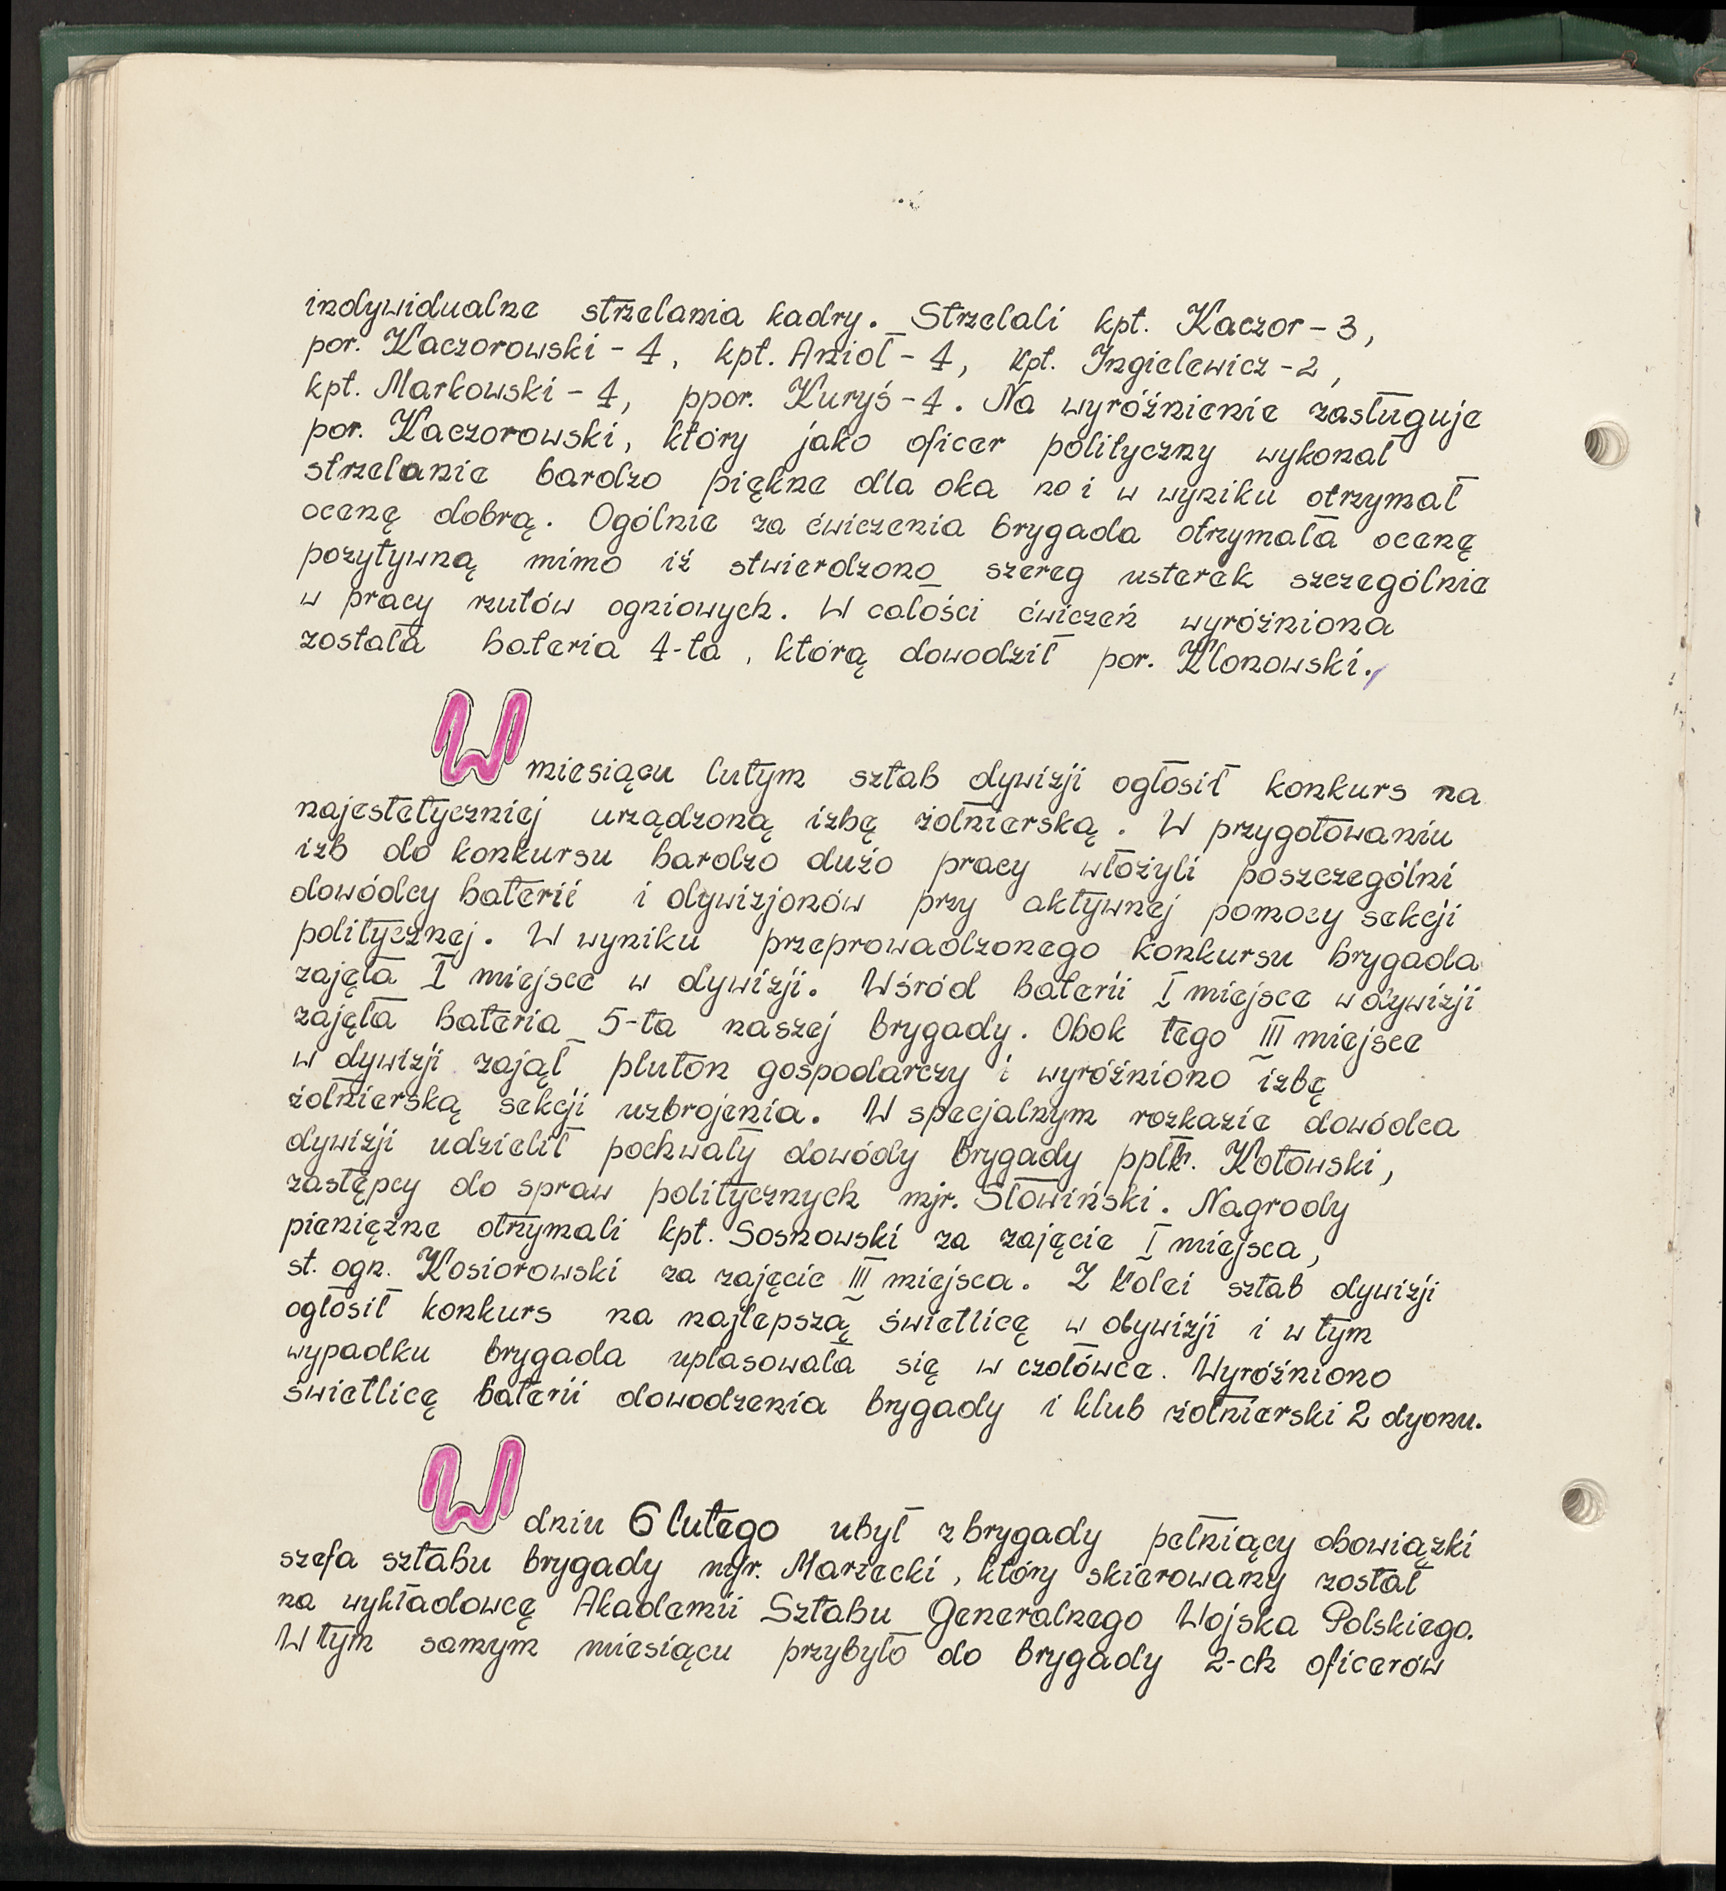 indywidualne strzelania kadry. Strzelali kpt. Kaczor - 3,
por. Kaczorowski - 4, kpt. Anioł - 4, kpt. Ingielewicz - 2,
kpt. Markowski - 4, ppor. Kuryś - 4. Na wyróżnienie zasługuje
por. Kaczorowski, który jako oficer polityczny wykonał
strzelanie bardzo piękne dla oka no i w wyniku otrzymał
ocenę dobrą. Ogólnie za ćwiczenia brygada otrzymała ocenę
pozytywną mimo iż stwierdzono szereg usterek szczególnie
w pracy rzutów ogniowych. W całości ćwiczeń wyróżniona
została bateria 4-ta, którą dowodził por. Klonowski.
W miesiącu lutym sztab dywizji ogłosił konkurs na
najestetyczniej urządzoną izbę żołnierską. W przygotowaniu
izb do konkursu bardzo dużo pracy włożyli poszczególni
dowódcy baterii i dywizjonów przy aktywnej pomocy sekcji
politycznej. W wyniku przeprowadzonego konkursu brygada
zajęła I miejsce w dywizji. Wśród baterii I miejsce w dywizji
zajęła bateria 5-ta naszej brygady. Obok tego III miejsce
w dywizji zajął pluton gospodarczy i wyróżniono izbę
żołnierską sekcji uzbrojenia. W specjalnym rozkazie dowódca
dywizji udzielił pochwały dowódy brygady ppłk. Kotowski,
zastępcy do spraw politycznych mjr. Słowiński. Nagrody
pieniężne otrzymali kpt. Sosnowski za zajęcie I miejsca,
st. ogn. Kosiorowski za zajęcie III miejsca. Z kolei sztab dywizji
ogłosił konkurs na najlepszą świetlicę w dywizji i w tym
wypadku brygada uplasowała się w czołówce. Wyróżniono
świetlicę baterii dowodzenia brygady i klub żołnierski 2 dyonu.
W dniu 6 lutego ubył z brygady pełniący obowiązki
szefa sztabu brygady mjr. Marzecki, który skierowany został
na wykładowcę Akademii Sztabu Generalnego Wojska Polskiego.
W tym samym miesiącu przybyło do brygady 2-ch oficerów